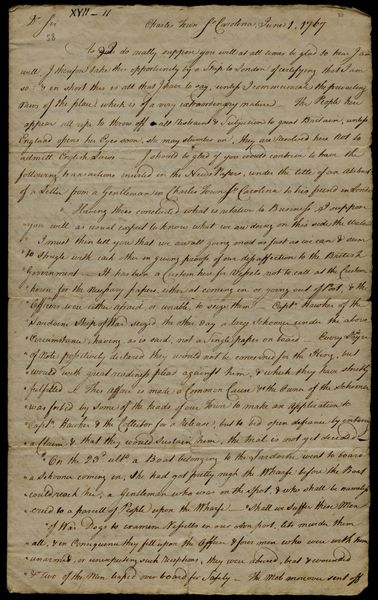 XVII - 11
58
Dr Sir
Charles Town So Carolina, June 1, 1767
As I do really suppose you will at all times be glad to hear I am
well, I therefore take this opportunity by a Ship to London of certifying that I am
so; & in short this is all that I have to say, unless I communicate the prevailing
News of the place which is of a very extraordinary nature. The People here
appear all ripe to throw off all Restraint & Subjection to great Britain, unless
England opens her Eyes soon, she may stumble on it, they are Resolved here not to
admitt English Laws — I should be glad if you would contrive to have the
following transactions inserted in the News Papers, under the title of an Abstract
of a Letter from a Gentleman in Charles Town So Carolina to his friend in London
Having thus concluded what is relative to Business, I suppose
you will as usual expect to know what we are doing on this side the Water
I must then tell you that we are all going mad as fast as we can & seem
to strugle with each other in giving proofs of our disaffection to the British
Government — It has been a Custom here for Vessels not to call at the Custom
house for the necessary papers either at coming in or going out of Port, & the
Officers were either afraid, or unable, to seize them. Capt Hawker of the
Sardoine Sloop of War seized the other day a Schooner under the above
Circumstance, having, as is said, not a Single paper on board — Every Lawyer
of Note positively declared they would not be concerned for the King, but
would with great readiness plead against them, & which they have strictly
fulfilled — This affair is made a Common Cause & the Owner of the Schooner
was forbid by some of the heads of our Town to make an Application to
Capt Hawker & the Collector for a Release, but to bid open defiance by entering
a Claim & that they would Sustain him, the trial is not yet decided —
On the 23d ulto a Boat belonging to the Sardoine went to board
a Schooner coming in, She had got pretty nigh the Wharfs before the Boat
could reach her; a Gentleman who was on the Spot, & who shall be nameless
cried to a parcell of People upon the Wharfe — Shall we suffer these Men
of War Dogs to examine Vessells in our own port, lets murder them
all, & in Consequence they fell upon the Officer & four men who were with him
unarmed, & unsuspecting such Reception, they were abused, beat & wounded
& two of the Men leaped over board for Safety — The Mob moreover sent off